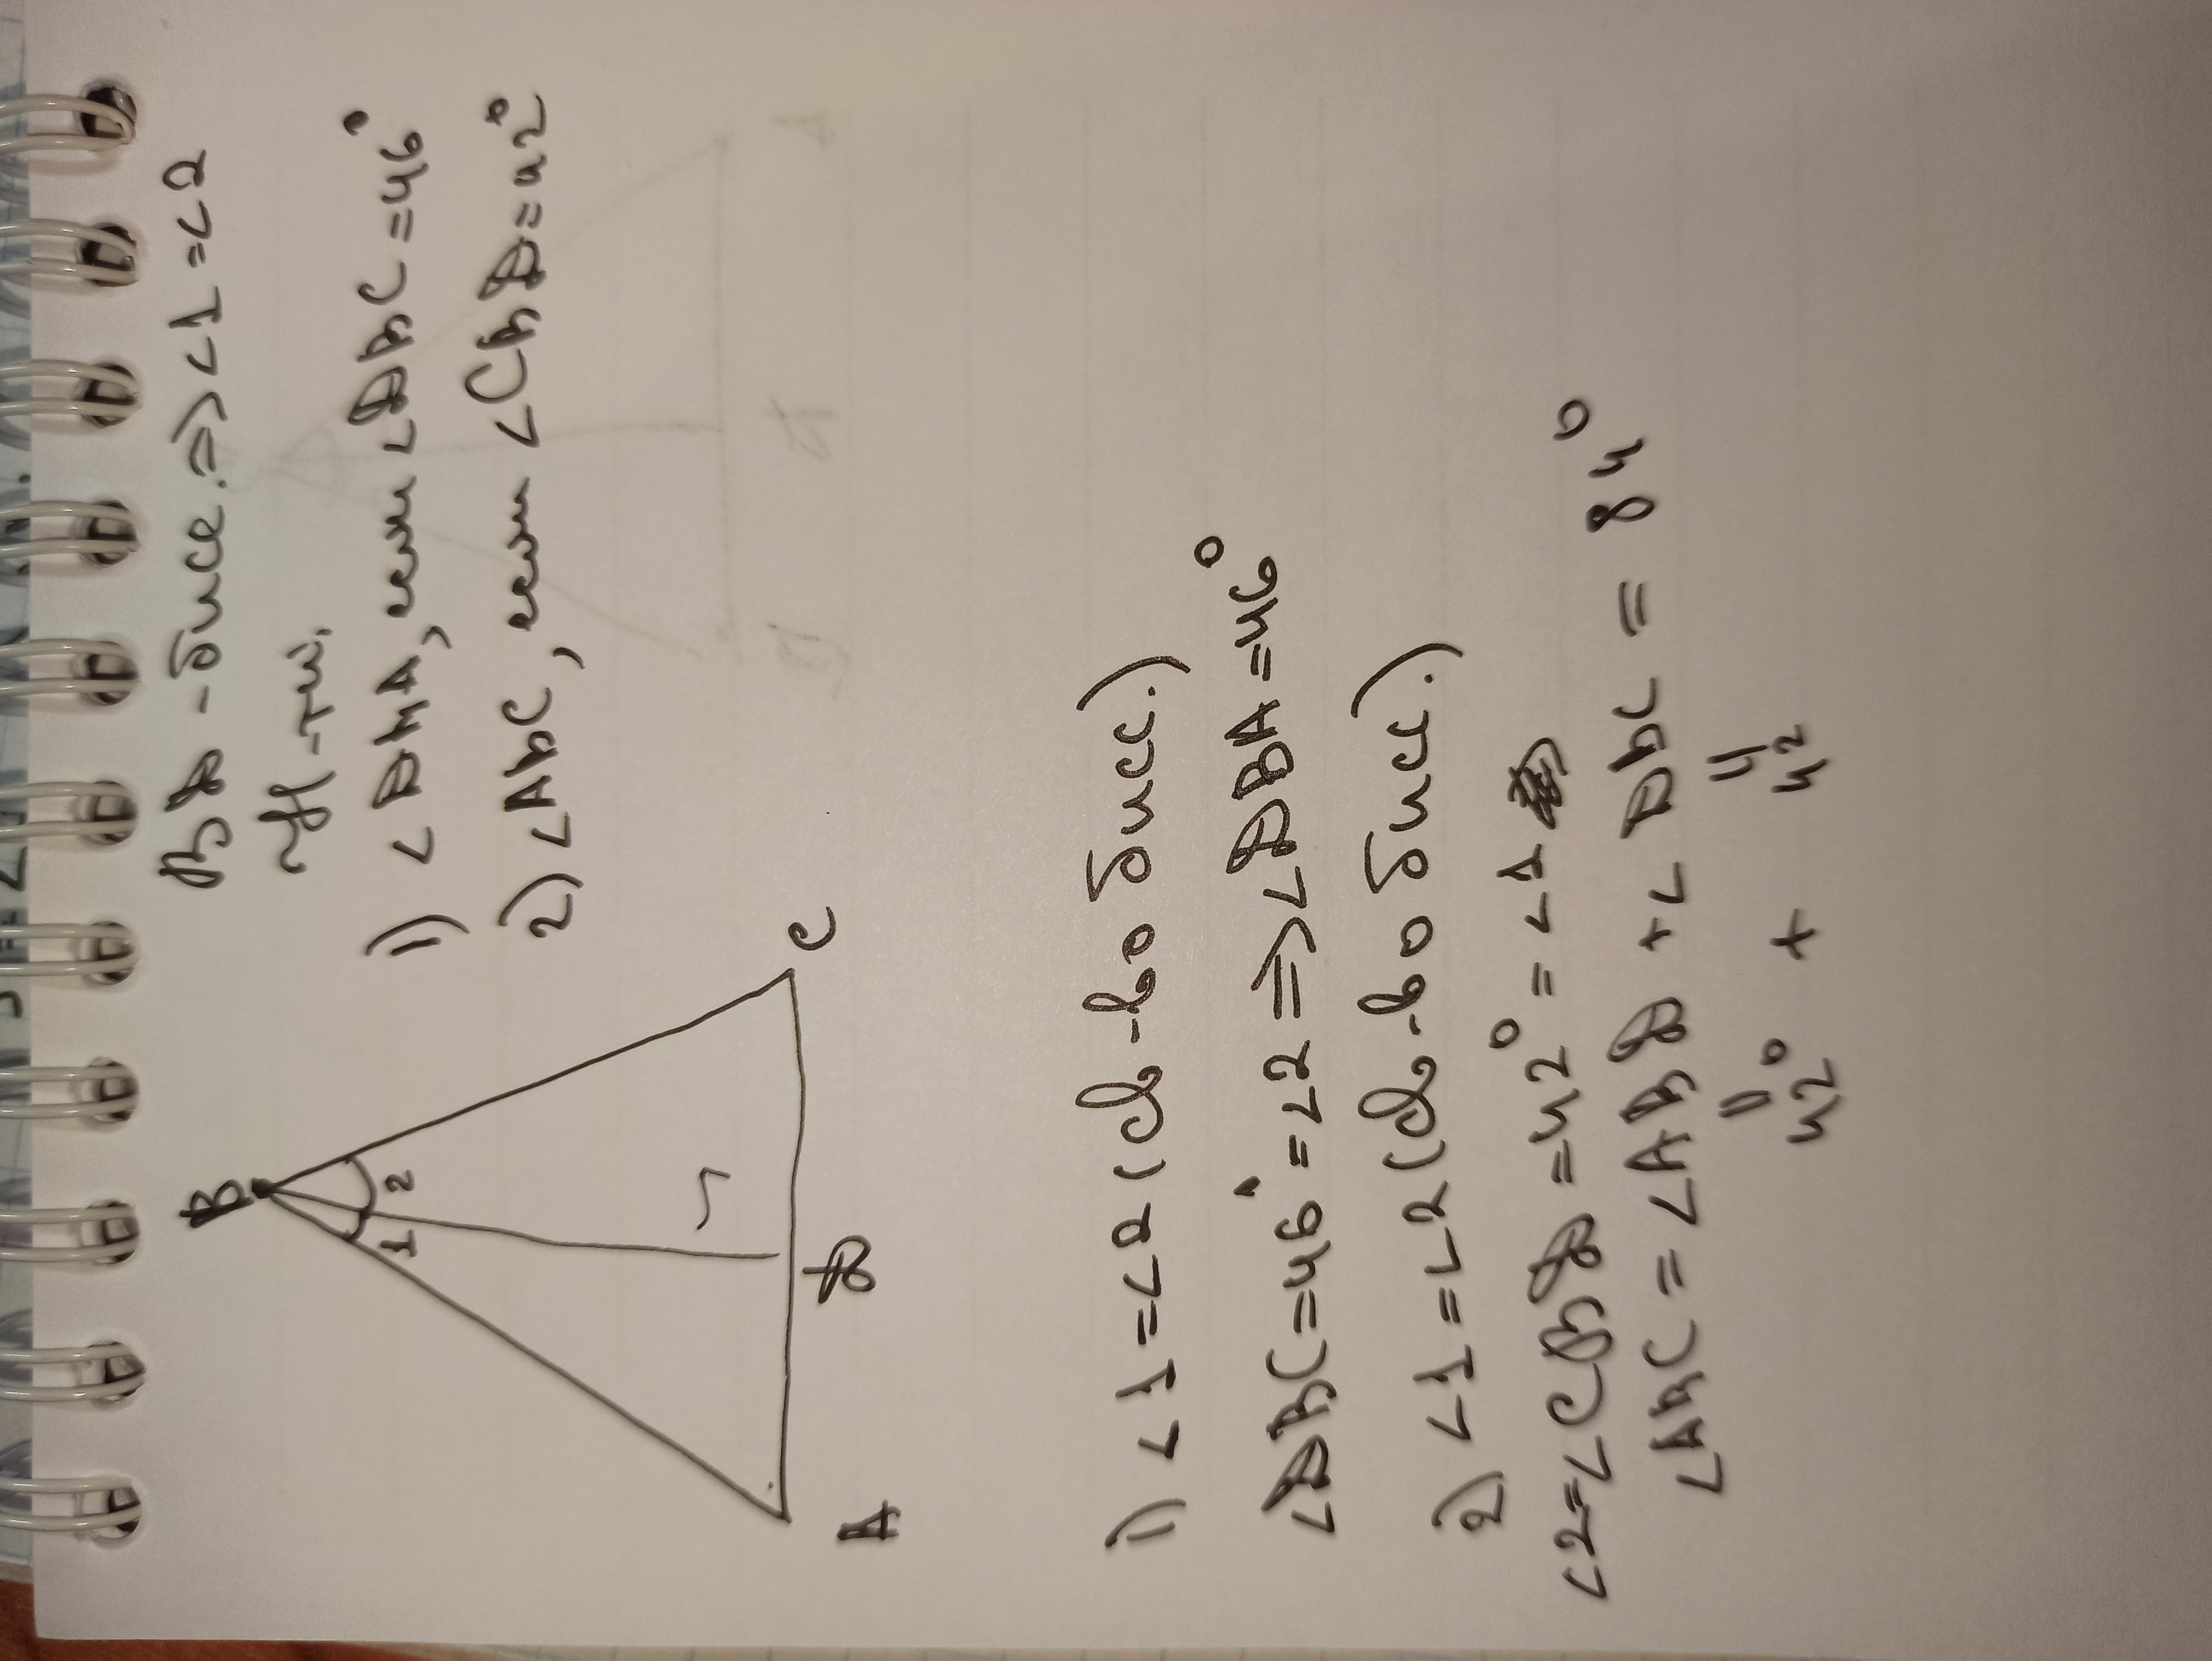 BD - бисс. => ∠1 = ∠2
Н-ти,
1) ∠DBA, если ∠DBC = 46°
2) ∠ABC, если ∠CBD = 42°
B
1 2
A D C
1) ∠1 = ∠2 (св-во бисс.)
∠DBC = 46° = ∠2 => ∠DBA = 46°
2) ∠1 = ∠2 (св-во бисс.)
∠2 = ∠CBD = 42° = ∠1
∠ABC = ∠ABD + ∠DBC = 84°
42° + 42